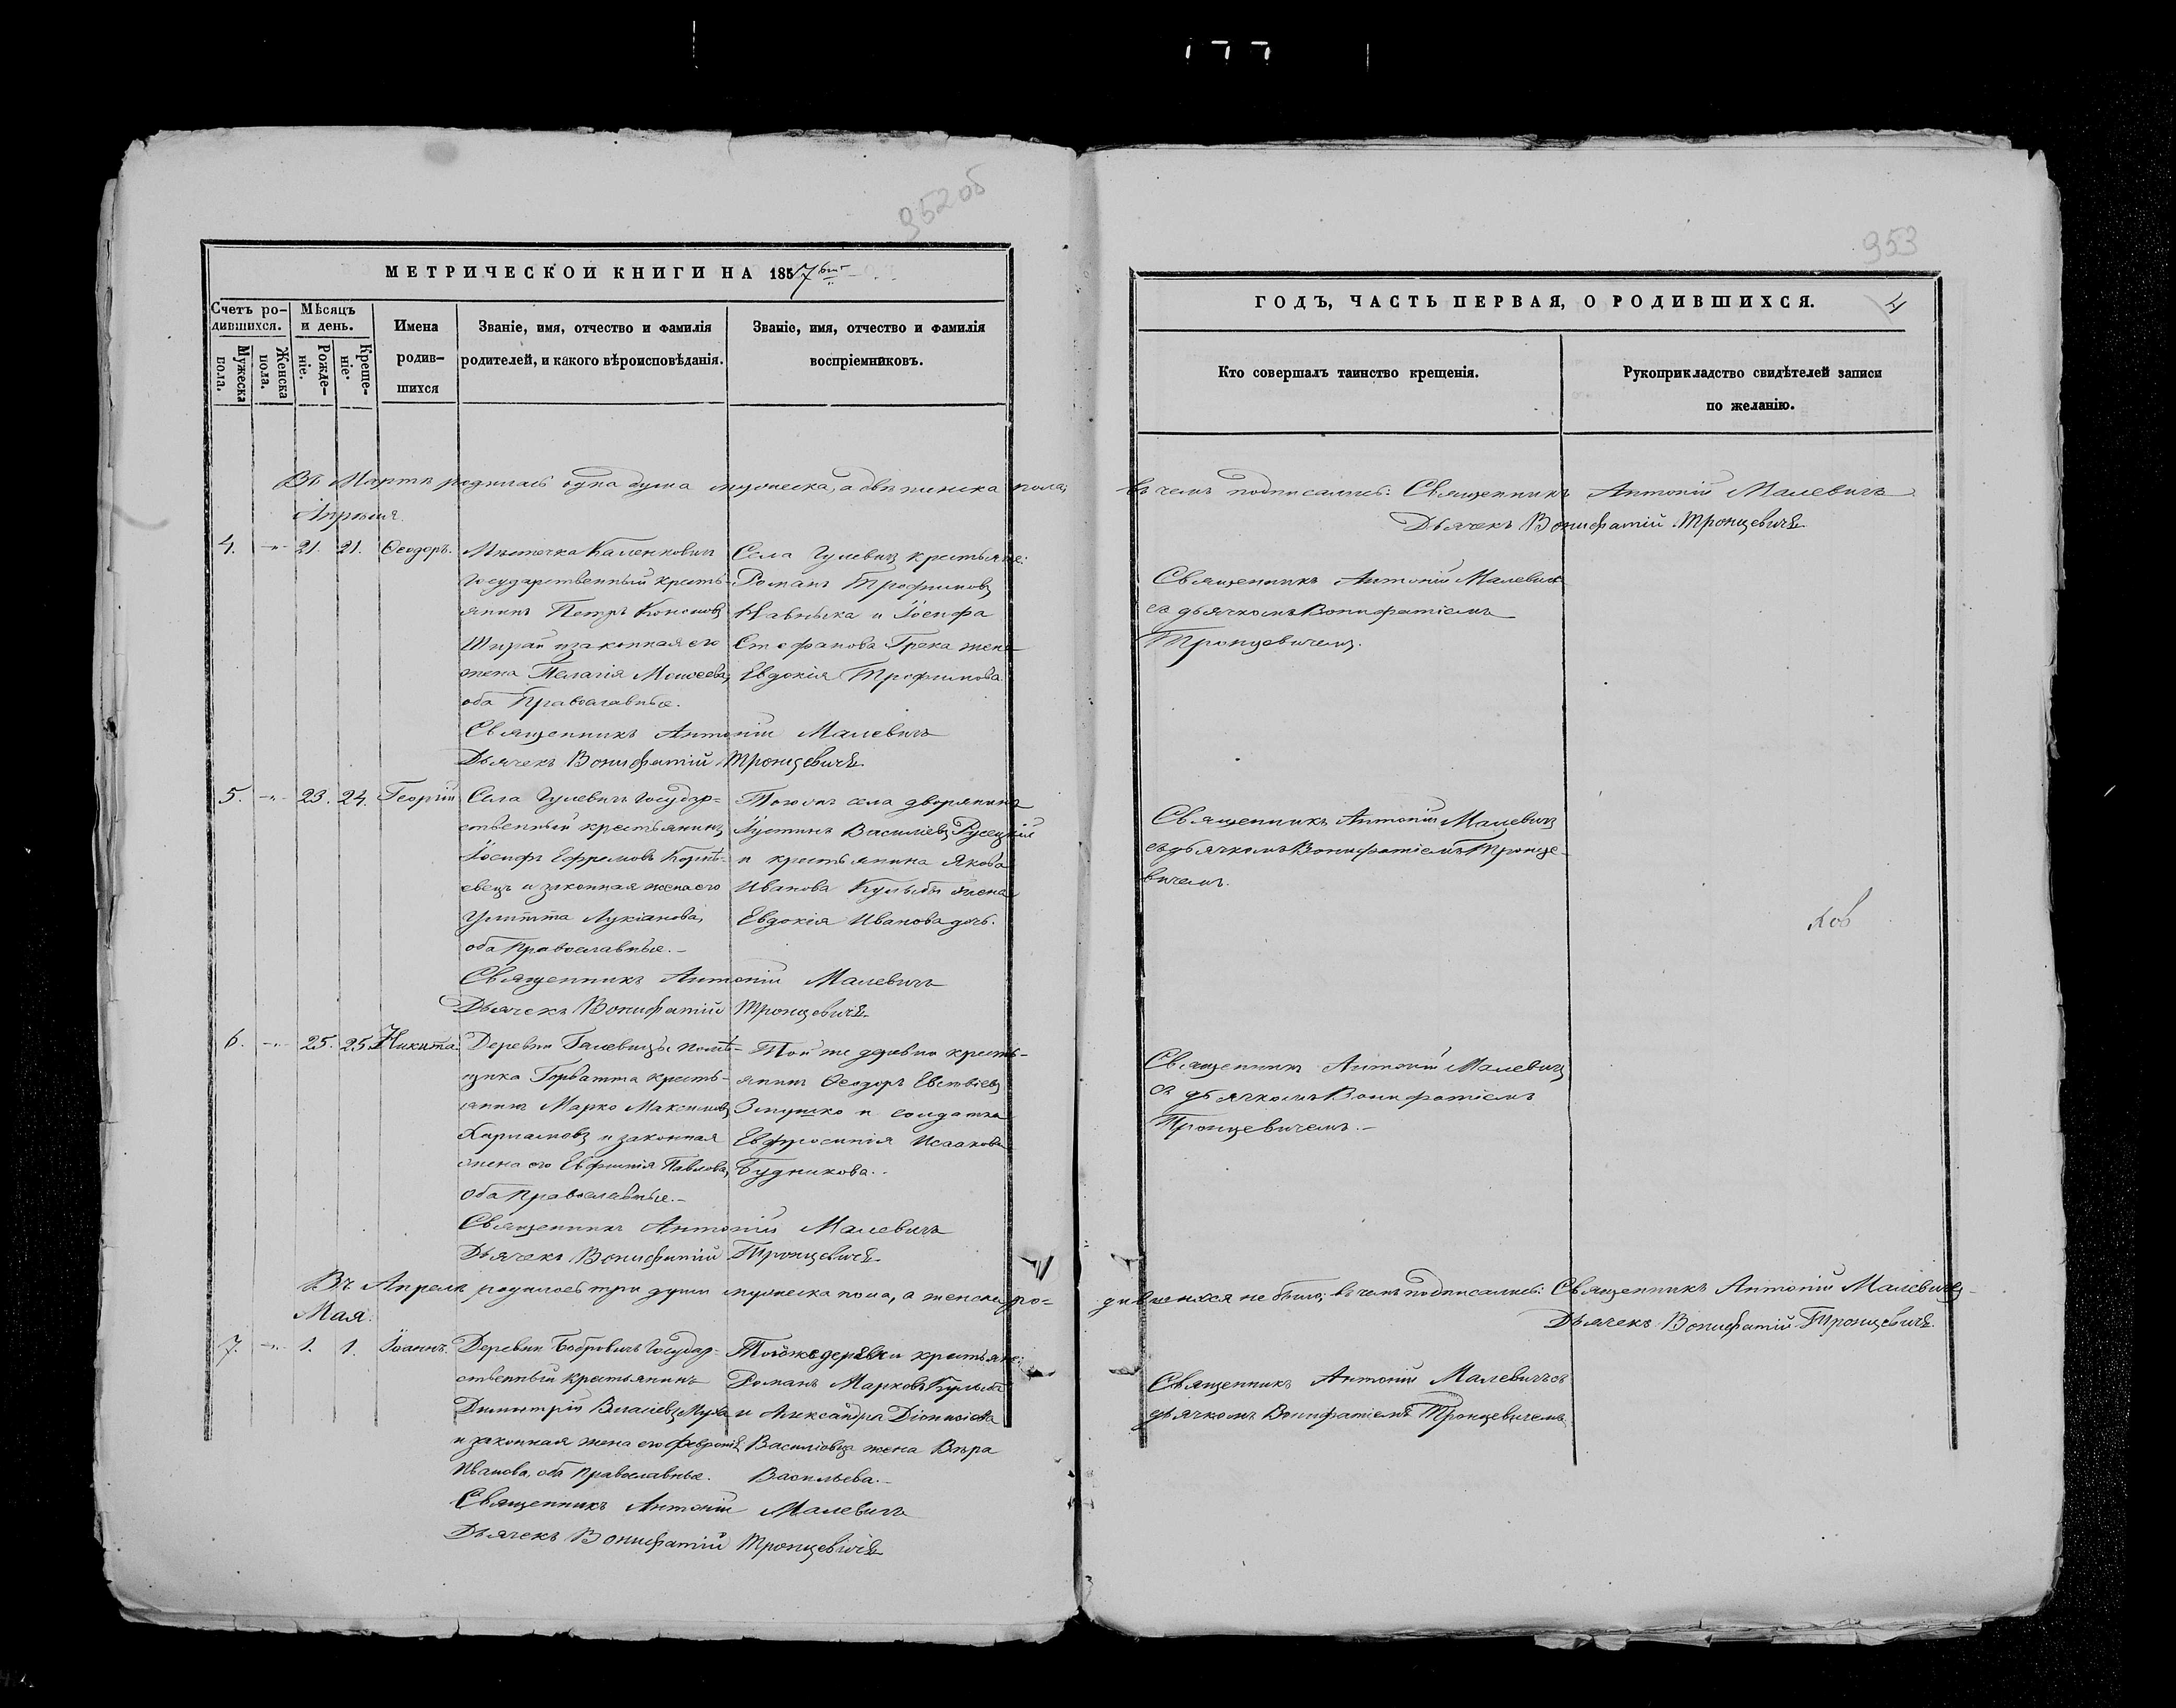 952 об
МЕТРИЧЕСКОЙ КНИГИ НА 1857
Счетъ ро-
дившихся.
Мужеска
пола.
Женска
пола.
Мѣсяцъ
и день.
Рожде-
ніе.
Креще-
ніе.
Имена
родив-
шихся
Званіе, имя, отчество и фамилія
родителей, и какого вѣроисповѣданія.
Званіе, имя, отчество и фамилія
воспріемниковъ.
Въ Мартѣ родилась одна душа мужеска, а двѣ женска пола;
Апрѣля
4. -"- 21. 21. Ѳеодоръ.
Мѣстечка Каленковичь
Государственный кресть-
янинъ Петръ
и законная его
жена Пелагія Моисеева,
оба Православные.
Села Гулевичь крестьяне:
Романъ Трофимовъ
и Іосифа
Стефанова Грека жена
Евдокія Трофимова
Священникъ Антоній Малевичъ
Дьячекъ Вонифатій Тронцевичъ
5. -"- 23. 24. Георгій
Села Гулевичъ Государ-
ственный крестьянинъ
Іосифъ Ефремовъ
и законная жена его
Улитта Лукіанова,
оба Православные.-
Тогожъ села дворянинъ
Іустинъ Василіевъ Русецкій
и крестьянина Якова
Иванова Кулыбы жена
Евдокія Иванова дочь.
Священникъ Антоній Малевичъ
Дьячекъ Вонифатій Тронцевичъ
6. -"- 25. 25. Никита.
Деревни Галевицы помѣ-
щика Горватта кресть-
янинъ Марко Максимовъ
и законная
жена его Евфимія Павлова,
оба Православные.-
Той же деревни кресть-
янинъ Ѳеодоръ
Змушко и солдатка
Евфросинія Исаакова
Будникова.
Священникъ Антоній Малевичъ
Дьячекъ Вонифатій Тронцевичъ
Въ Апрелѣ родилось три души мужеска пола, а женска ро-
Мая.
7. -"- 1. 1. Іоаннъ.
Деревни Бобровичъ Государ-
ственный крестьянинъ
Димитрій Власіевъ Муха
и законная жена его Февронія
Иванова, оба Православные.
Той же деревни крестьяне:
Романъ Марковъ Кулыба
и Александра Діонисіева
жена Вѣра
Васильева.-
Священникъ Антоній Малевичъ
Дьячекъ Вонифатій Тронцевичъ
953
ГОДЪ, ЧАСТЬ ПЕРВАЯ, О РОДИВШИХСЯ.
4
Кто совершалъ таинство крещенія.
Рукоприкладство свидѣтелей записи
по желанію.
въ чемъ подписались: Священникъ Антоній Малевичъ
Дьячекъ Вонифатій Тронцевичъ
Священникъ Антоній Малевичъ
съ дьячкомъ Вонифатіемъ
Тронцевичемъ.
Священникъ Антоній Малевичъ
съ дьячкомъ Вонифатіемъ Тронце-
вичемъ.
Священникъ Антоній Малевичъ
съ дьячкомъ Вонифатіемъ
Тронцевичемъ.-
дившихся не было; въ чемъ подписались: Священникъ Антоній Малевичъ
Дьячекъ Вонифатій Тронцевичъ
Священникъ Антоній Малевичъ съ
дьячкомъ Вонифатіемъ Тронцевичемъ